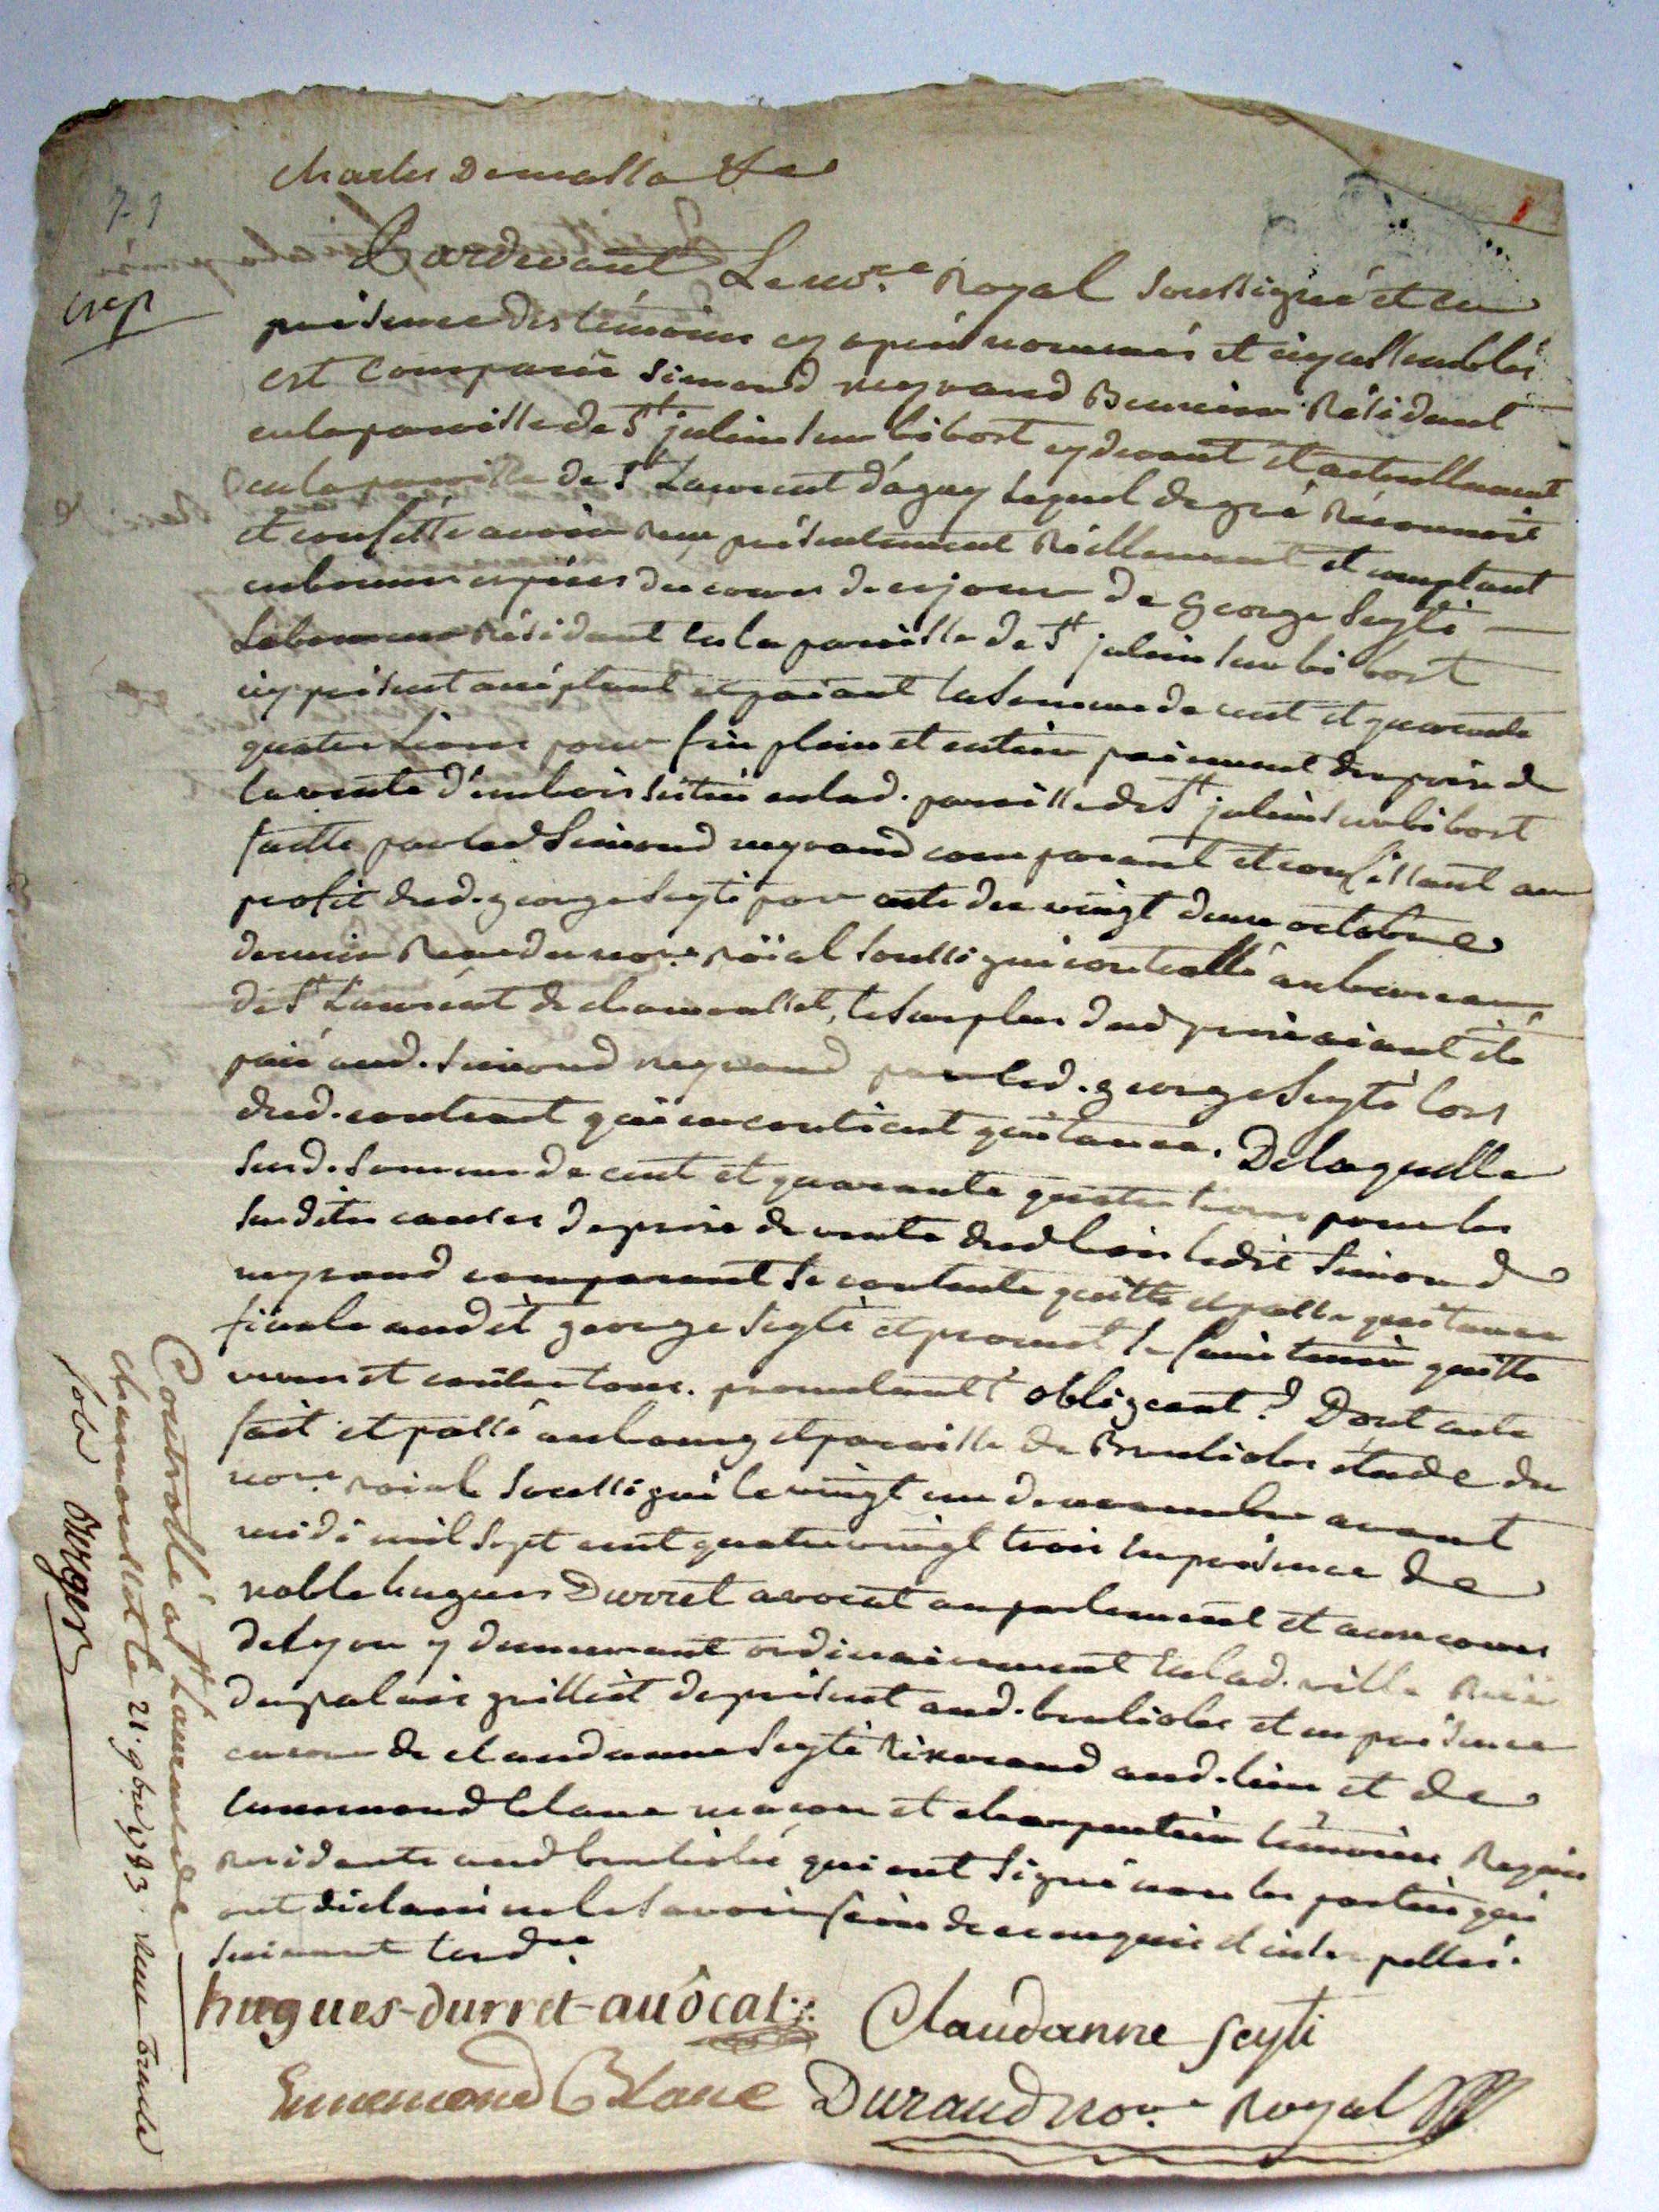 charles Demalla
79
exp
Pardevant Le no.re Royal soussigné et en
présence des témoins cy apres nommés et icy assemblés
est comparu simond neyrand Beurier Résidant
en la paroisse de St julien sur bibost cy devant et actuellement
en la paroisse de St Laurent d'agny lequel de gré reconnoit
et confesse avoir reçu présentement réellement et comptant
en bonnes espèces du cours de ce jour de george seyti
Laboureur résidant en la paroisse de St julien sur bibost
icy présent acceptant et paiant la somme de cent et quarante
quatre livres pour fin plein et entier paiement du prix de
la vente d'un bois situé en lad. paroisse de St julien sur bibost
faitte par led simond neyrand comparant et confessant au
profit dud. george seyti par acte du vingt deux octobre
dernier Reçu du no.re roïal soussigné controllé au bureau
de St Laurent de chamousset, le surplus dud prix aiant été
paié aud. simond neyrand par led. george seyti lors
dud. contrat qui en contient quitance. De laquelle
susd. somme de cent et quarante quatre livres pour les
susdites causes de prix de vente dud bois ledit simond
neyrand comparant se contente quitte et passe quitance
finale audit george seyti et promet le faire tenir quitte
envers et contre tous. promettant? obligeant? Dont acte
fait et passé au bourg et paroisse de Brulioles étude du
no.re roial soussigné le vingt un de novembre avant
midi mil sept cent quatre vingt trois en présence de
noble hugues Durret avocat en parlement et aux cours
de Lyon y demeurant ordinairement en lad. ville Rue
du palais grillet de présent aud. brulioles et en présence
encore de claudanne seyti aud. lieu et de
ennemond blanc maçon et charpentier témoins Requis
residants aud brulioles qui ont signé non les parties qui
ont déclaré ne le savoir faire de ce enquis et interpellés.
suivant lord.ce
hugues-durret-auôcat Claudanne seyti
Ennemond Blanc Durand no.re Royal
Controllé a St Laurent de
chamousset le 21. 9bre 1783. reçu trente
sols Buyer